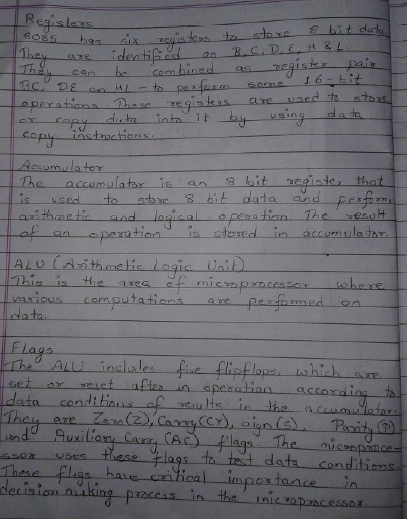 Registers
8085 has six registers to store 8 bit data.
They are identified as B, C, D, E, H & L.
They can be combined as register pair
BC, DE an HL - to perform some 16-bit
operations. These registers are used to store
or copy data into it by using data
copy instructions.
Accumulator
The accumulator is an 8 bit register that
is used to store 8 bit data and perform
arithmetic and logical operation. The result
of an operation is stored in accumulator.
ALU (Arithmetic Logic Unit)
This is the area of microprocessor where
various computations are performed on
data.
Flags
The ALU includes five flipflops, which are
set or reset after an operation according to
data conditions of results in the accumulator.
They are Zero(Z), Carry(CY), sign(S), Parity(P)
and Auxiliary Carry (AC) flags. The microproce-
ssor uses these flags to test data conditions.
These flags have critical importance in
decision making process in the microprocessor.